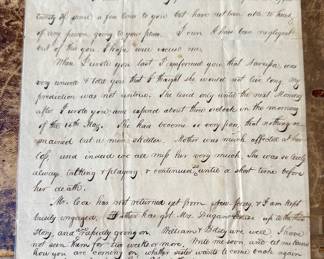 twenty of some a few lines to you but have not been able to hear
of any person going to your place. I own I have been negligent
but of this you I hope will excuse me.
When I wrote you last I informed you that Savafa was
very unwell & told you that I thought she would not live long. My
prediction was not untrue. She lived only until the next Monday
after I wrote you and expired about three oclock in the morning
of the 14th May. She had become so very poor that nothing
remained but a mere skeleton. Mother was much affected at her
loss and indeed we all miss her very much. She was so lively
always talking & playing & continued until a short time before
her death.
Mr. Cox has not returned yet from New Jersey & I am kept
busily engaged. Father has got Mrs. Dugan house up to the third
Story, and rapidly going on. William & Eliza are well. I have
not seen them for two weeks or more. Write me soon and let me know
how you are coming on whether sister wants to come back again